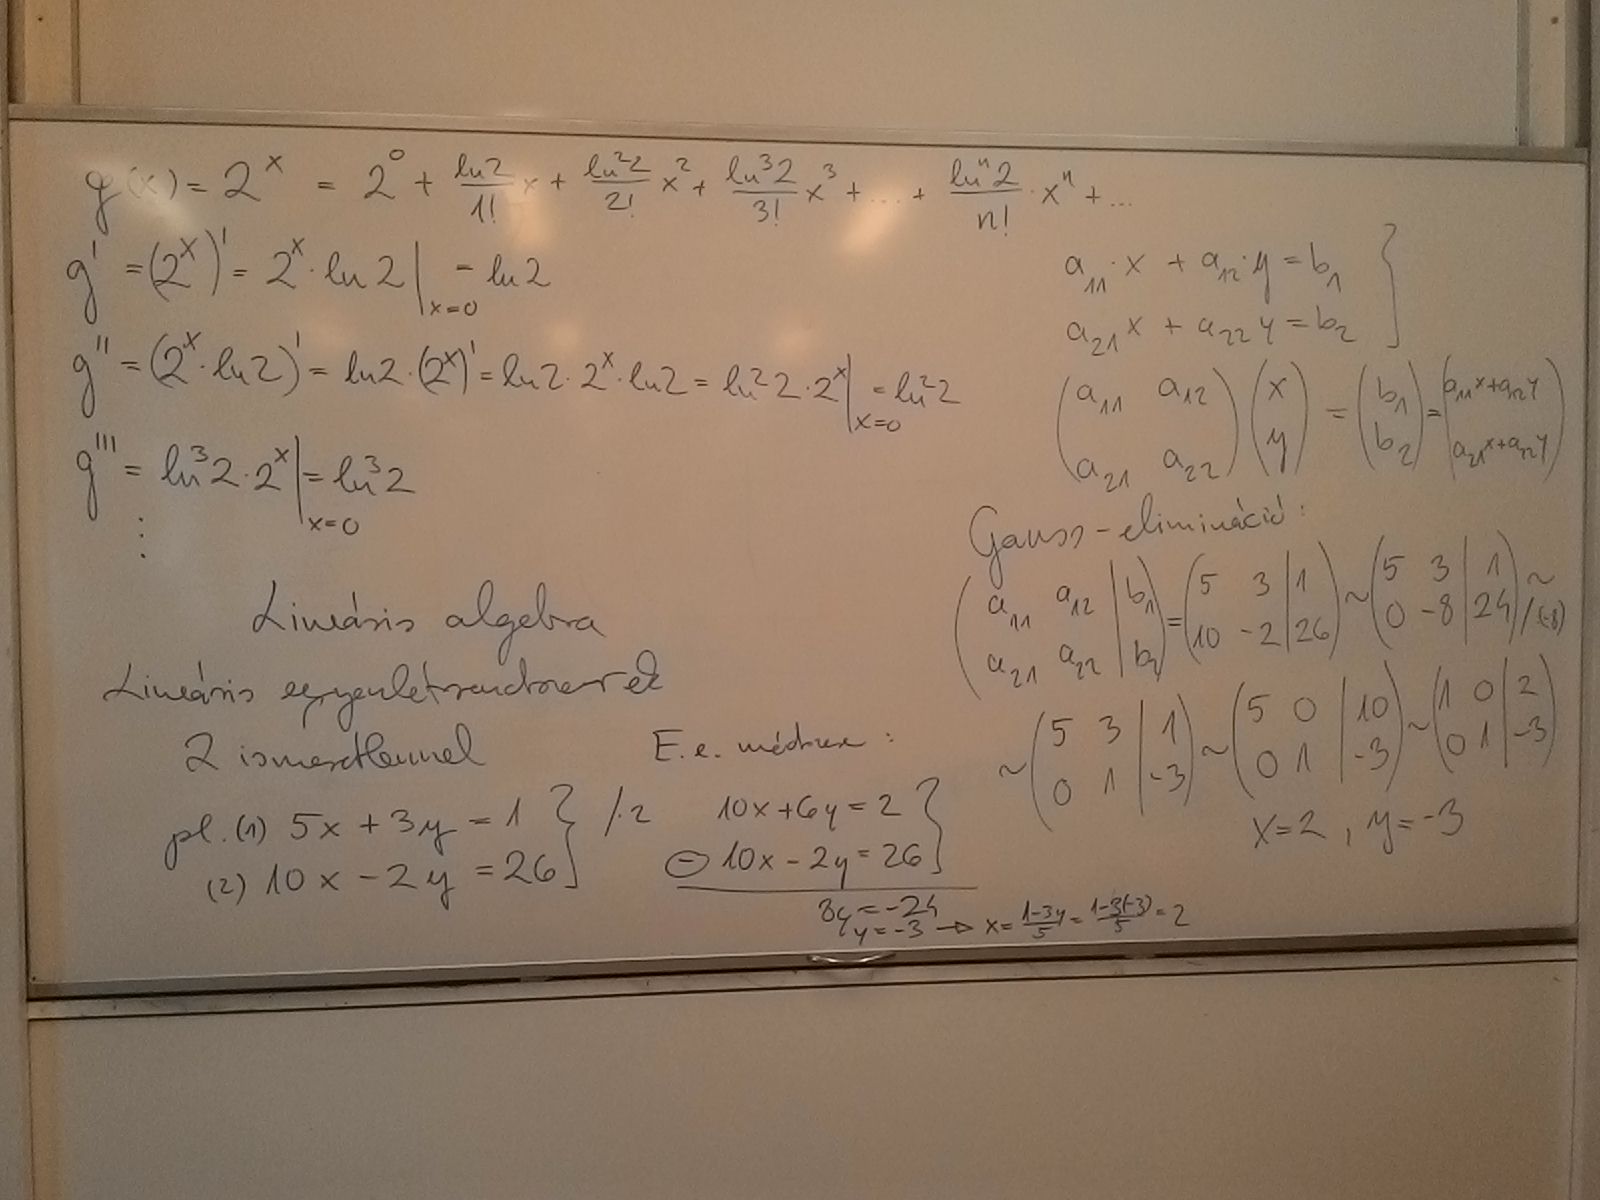 g(x) = 2^x = 2^0 + ln2/1! x + ln^2 2/2! x^2 + ln^3 2/3! x^3 + ... + ln^n 2/n! · x^n + ...
g' = (2^x)' = 2^x · ln 2 |_{x=0} = ln 2
g'' = (2^x · ln2)' = ln2 · (2^x)' = ln2 · 2^x · ln2 = ln^2 2 · 2^x |_{x=0} = ln^2 2
g''' = ln^3 2 · 2^x |_{x=0} = ln^3 2
⋮
Lineáris algebra
Lineáris egyenletrendszerek
2 ismeretlennel
pl. (1) 5x + 3y = 1 } /·2
(2) 10x - 2y = 26
E.e. módszer :
10x + 6y = 2 }
⊖ 10x - 2y = 26
8y = -24
y = -3 → x = (1-3y)/5 = (1-3(-3))/5 = 2
a_11 · x + a_12 · y = b_1 }
a_21 x + a_22 y = b_2
(a_11 a_12; a_21 a_22) (x; y) = (b_1; b_2) = (a_11 x + a_12 y; a_21 x + a_22 y)
Gauss-elimináció :
(a_11 a_12 | b_1; a_21 a_22 | b_2) = (5 3 | 1; 10 -2 | 26) ~ (5 3 | 1; 0 -8 | 24) ~ /(-8)
~ (5 3 | 1; 0 1 | -3) ~ (5 0 | 10; 0 1 | -3) ~ (1 0 | 2; 0 1 | -3)
x = 2 , y = -3